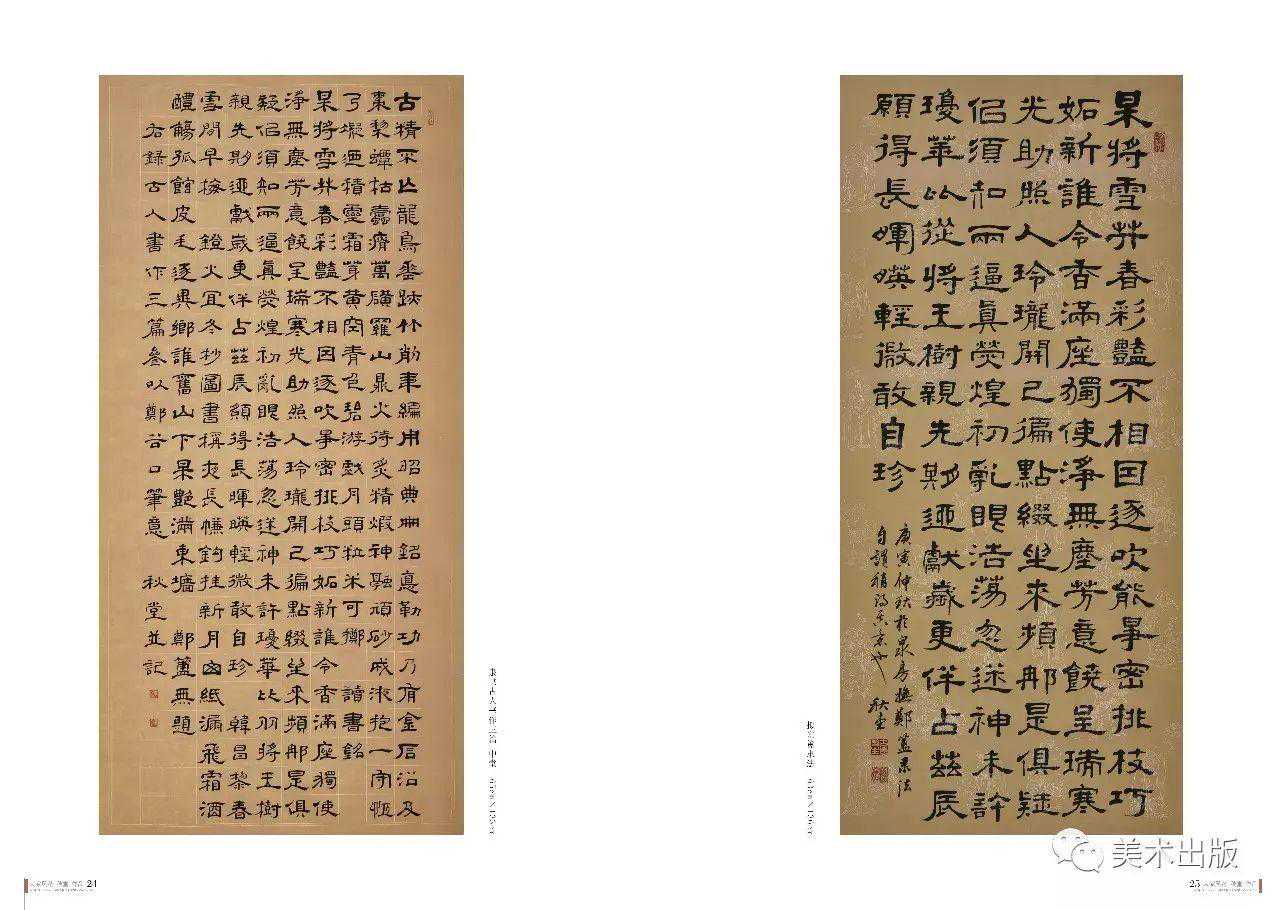 古精不亡龍鳥雲趺竹削韋編用昭典冊銘意勒功乃有金石沿及
棗黎蟫枯蠹瘠萬羅山鼎火待炙精煆神融頑砂成液抱一守恆
積靈霜芽黄青色碧游戲月頭粒米可擲 讀書銘
果將雪共春彩豔不相因逐吹爭密排枝巧妬新誰令香滿座獨使
淨無塵芳意饒呈瑞寒光助照人玲瓏開已徧點綴坐來頻那是俱
疑侣須知兩逼真熒煌初亂眼浩蕩忽迷神未許瓊華比將玉樹
親先期迎獻歲更伴占茲辰願得長暉映輕微敢自珍 韓昌黎春
雪間早梅 鐙火宜冬抄圖書稱夾長幰鉤挂新月紙漏飛霜酒
醴觴孤館皮毛逐異鄉誰舊山下果艷滿東墻 鄭簠無題
右錄古人書作三篇參以鄭谷口筆意 秋堂並記
24
果將雪共春彩豔不相因逐吹能爭密排枝巧
妬新誰令香滿座獨使淨無塵芳意饒呈瑞寒
光助照人玲瓏開已徧點綴坐來頻那是俱疑
侣須知兩逼真熒煌初亂眼浩蕩忽迷神未許
瓊華比從將玉樹親先期迎獻歲更伴占茲辰
願得長暉映輕微敢自珍
庚寅仲秋於房撫鄭簠隸法
自謂稍得其意也 秋堂
美术出版
25